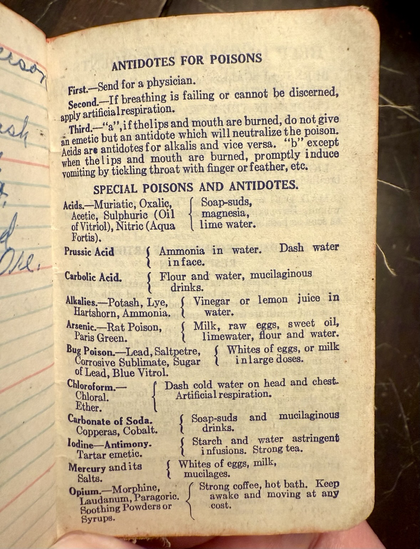 erson
ash
ove.
ANTIDOTES FOR POISONS
First.—Send for a physician.
Second.—If breathing is failing or cannot be discerned,
apply artificial respiration.
Third.—“a”, if the lips and mouth are burned, do not give
an emetic but an antidote which will neutralize the poison.
Acids are antidotes for alkalis and vice versa. “b” except
when the lips and mouth are burned, promptly induce
vomiting by tickling throat with finger or feather, etc.
SPECIAL POISONS AND ANTIDOTES.
Acids.—Muriatic, Oxalic,
Acetic, Sulphuric (Oil
of Vitriol), Nitric (Aqua
Fortis).
Soap-suds,
magnesia,
lime water.
Prussic Acid
Ammonia in water. Dash water
in face.
Carbolic Acid.
Flour and water, mucilaginous
drinks.
Alkalies.—Potash, Lye,
Hartshorn, Ammonia.
Vinegar or lemon juice in
water.
Arsenic.—Rat Poison,
Paris Green.
Milk, raw eggs, sweet oil,
limewater, flour and water.
Bug Poison.—Lead, Saltpetre,
Corrosive Sublimate, Sugar
of Lead, Blue Vitrol.
Whites of eggs, or milk
in large doses.
Chloroform.—
Chloral.
Ether.
Dash cold water on head and chest.
Artificial respiration.
Carbonate of Soda.
Copperas, Cobalt.
Soap-suds and mucilaginous
drinks.
Iodine—Antimony.
Tartar emetic.
Starch and water astringent
infusions. Strong tea.
Mercury and its
Salts.
Whites of eggs, milk,
mucilages.
Opium.—Morphine,
Laudanum, Paragoric.
Soothing Powders or
Syrups.
Strong coffee, hot bath. Keep
awake and moving at any
cost.